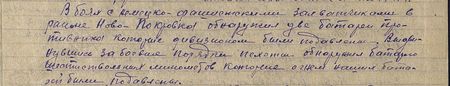 В боях с немецко-фашистскими захватчиками в
районе Ново-Покровка обнаружил две батареи про-
тивника которые дивизионом были подавлены. Выдви-
нувшись за боевые порядки пехоты обнаружил батарею
шестиствольных минометов которые огнем нашей бата-
реи были подавлены.